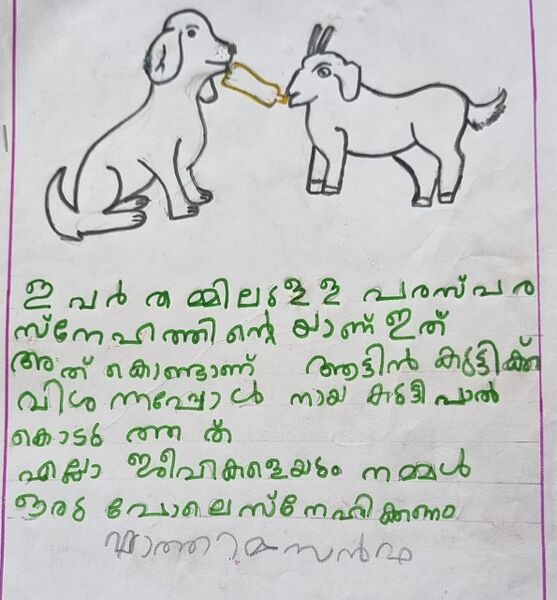 ഇ വർ ത മ്മിലുള്ള പരസ്പര
സ്നേഹത്തി ന്റെ യാണ് ഇത്
അത് കൊണ്ടാണ് ആട്ടിൻ കുട്ടിക്ക്
വിശ ന്നപ്പോൾ നായ കുട്ടി പാൽ
കൊടു ത്ത ത്
എല്ലാ ജീവികളെയും നമ്മൾ
ഒരു പോലെ സ്നേഹിക്കണം